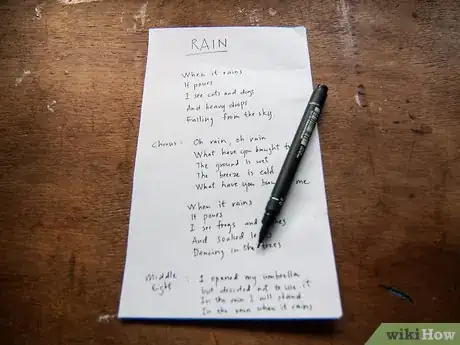 RAIN
When it rains
It pours
I see cats and dogs
And heavy drops
Falling from the sky
Chorus: Oh rain, oh rain
What have you bought t
The ground is wet
The breeze is cold
What have you me
When it rains
It pours
I see frogs and
And soaked
Dancing in the trees
Middle Eight: I opened my umbrella
but decided not to use it
In the rain I will stand
In the rain when it rains
wikiHow